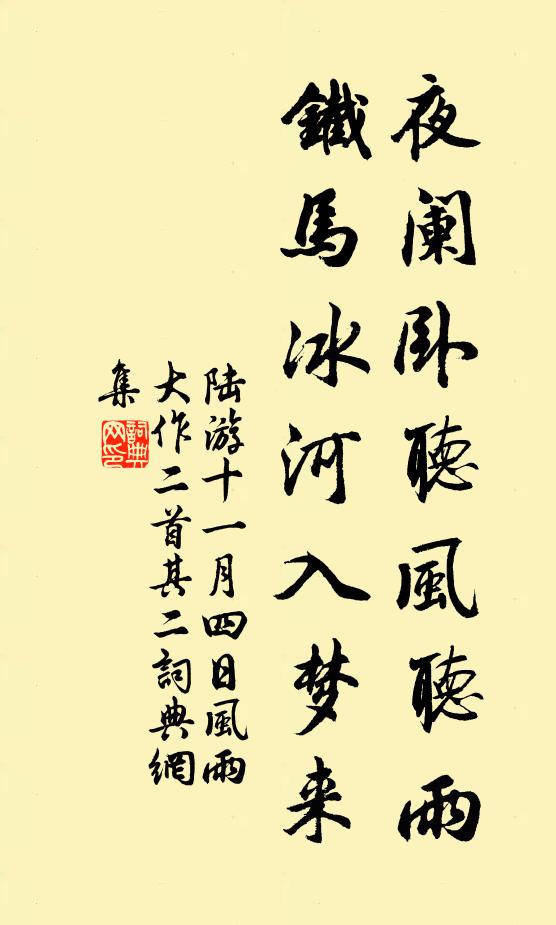 夜阑卧聽風聽雨
鐵馬冰河入梦来
陆游十一月四日風雨
大作二首其二詞典網
集
詞典
网印